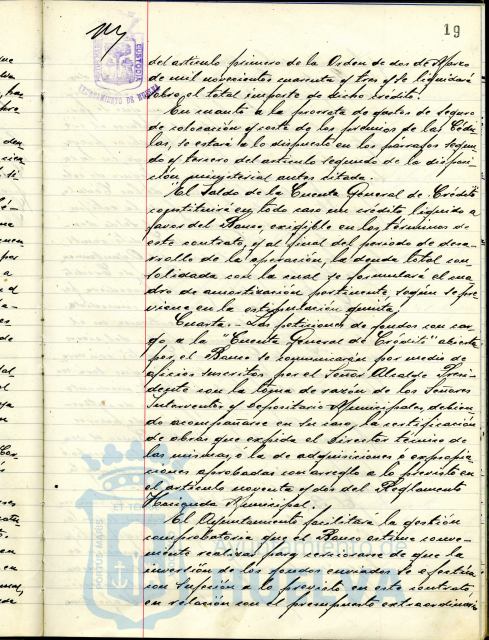 19
del artículo primero de la Orden de dos de Marzo
de mil novecientos cuarenta y tres y se liquidará
sobre el total importe de dicho crédito.
En cuanto a la prorrata de gastos de seguro
de colocación y coste de las primas de las Cédu
las, se estará a lo dispuesto en los párrafos segun
do y tercero del artículo segundo de la disposi
ción ministerial antes citada.
El Saldo de la Cuenta General de Crédito
constituirá en todo caso un crédito líquido a
favor del Banco, exigible en los términos de
este contrato, y al final del período de desa-
rrollo de la operación, la deuda total con
solidada con la cual se formulará el cua
dro de amortización pertinente según se pre
viene en la estipulación quinta.
Cuarta.- Las peticiones de fondos con car
go a la "Cuenta General de Crédito" abierta
por el Banco se comunicarán por medio de
oficios suscritos por el Señor Alcalde Presi
dente con la toma de razón de los Señores
Interventor y Depositario Municipales, debien
do acompañarse en su caso, la certificación
de obras que expida el Director técnico de
las mismas, o la de adquisiciones o expropia
ciones aprobadas con arreglo a lo previsto en
el artículo noventa y dos del Reglamento
Hacienda Municipal.
El Ayuntamiento facilitará la gestión
comprobatoria que el Banco estime conve-
niente realizar para cerciorarse de que la
inversión de los fondos enviados se efectúa
con sujeción a lo previsto en este contrato,
en relación con el presupuesto extraordinario
Ayuntamiento de
HUELVA
PORTUS MARIS